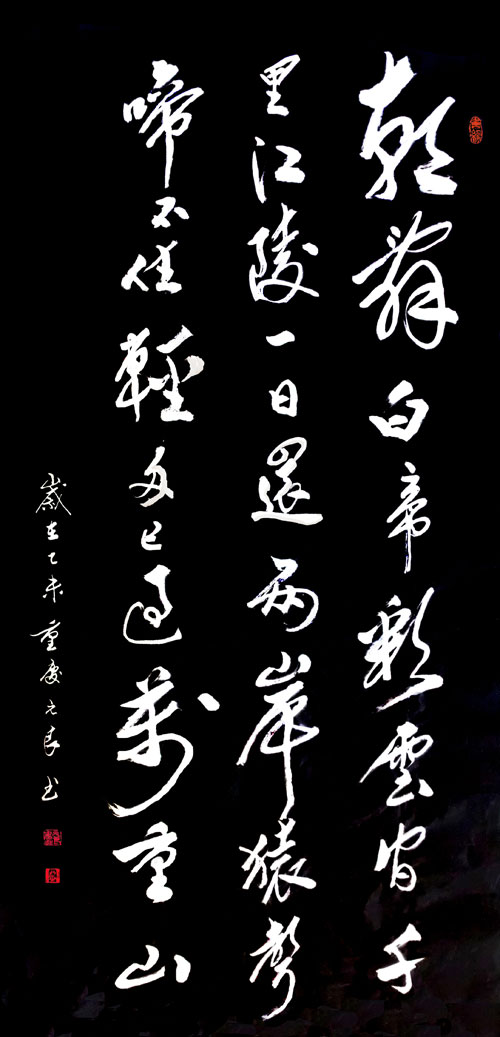 朝辭白帝彩雲間千
里江陵一日還兩岸猿聲
啼不住輕舟已過萬重山
歲在乙未重慶元良书